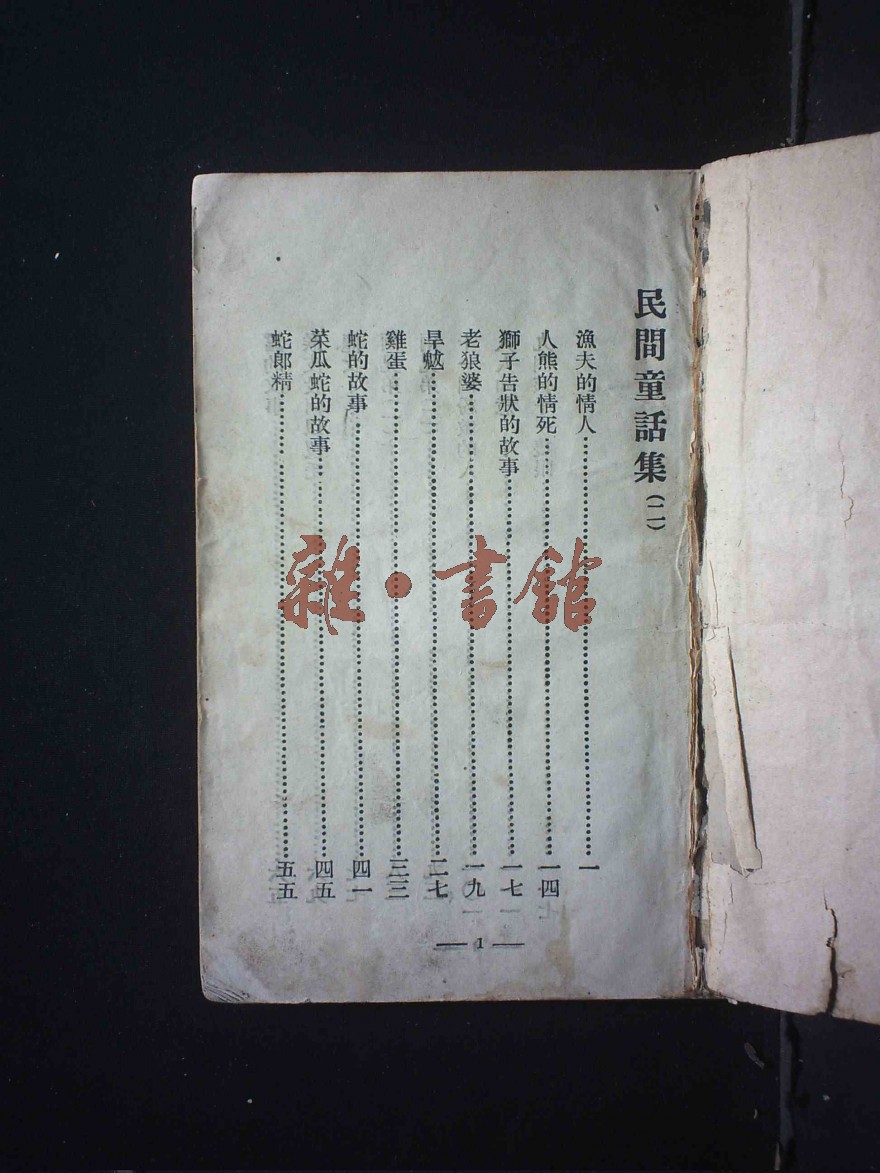 民間童話集(二)
漁夫的情人……一
人熊的情死……一四
獅子告狀的故事……一七
老狼婆……一九
旱魃……二七
雞蛋……三三
蛇的故事……四一
菜瓜蛇的故事……四五
蛇郎精……五五
— 1 —
雜·書館